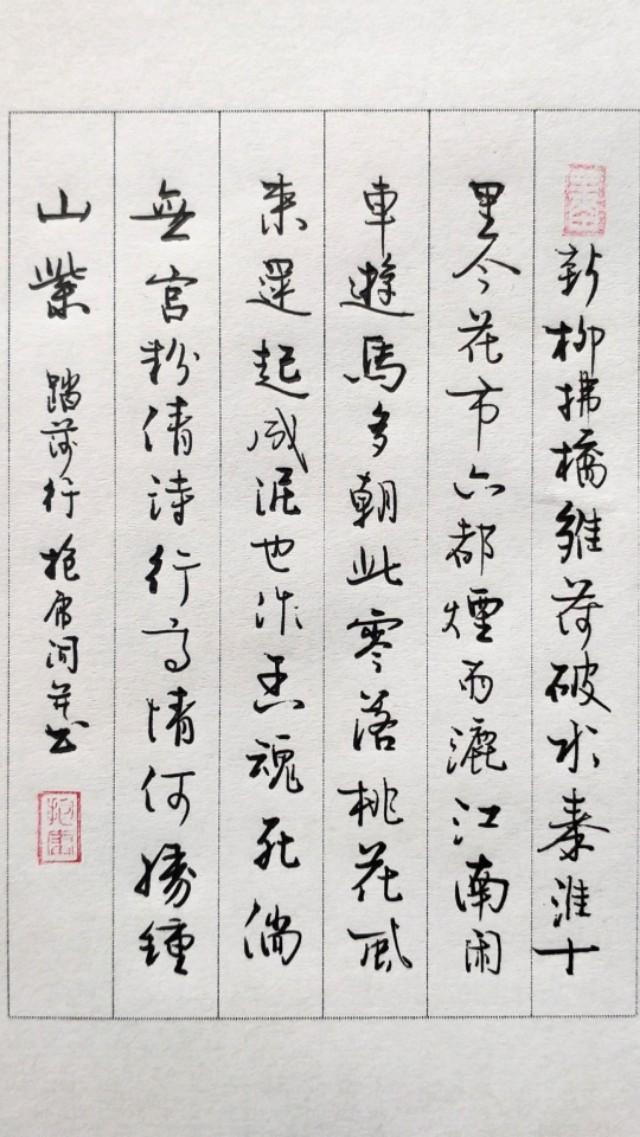 新柳拂橋雛荷破水秦淮十
里今花市六都煙雨灑江南闲
車遊馬多朝此零落桃花風
来還起成泥也作香魂死倘
無官粉倩诗行高情何勝鍾
山紫 踏莎行 抱庸并书